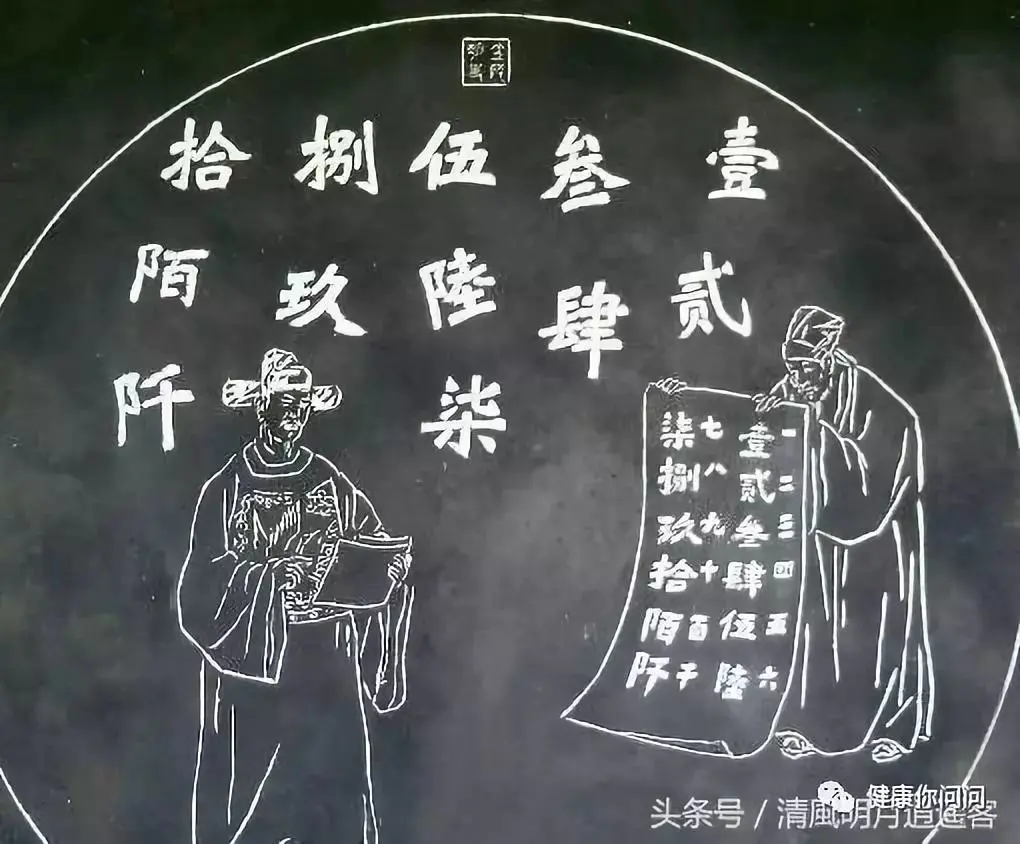 壹贰
叁肆
伍陸柒
捌玖
拾陌阡
一二三四五六
壹贰叁肆伍陸
七八九十百千
柒捌玖拾陌阡
健康你问问
头条号 / 清風明月逍遥客